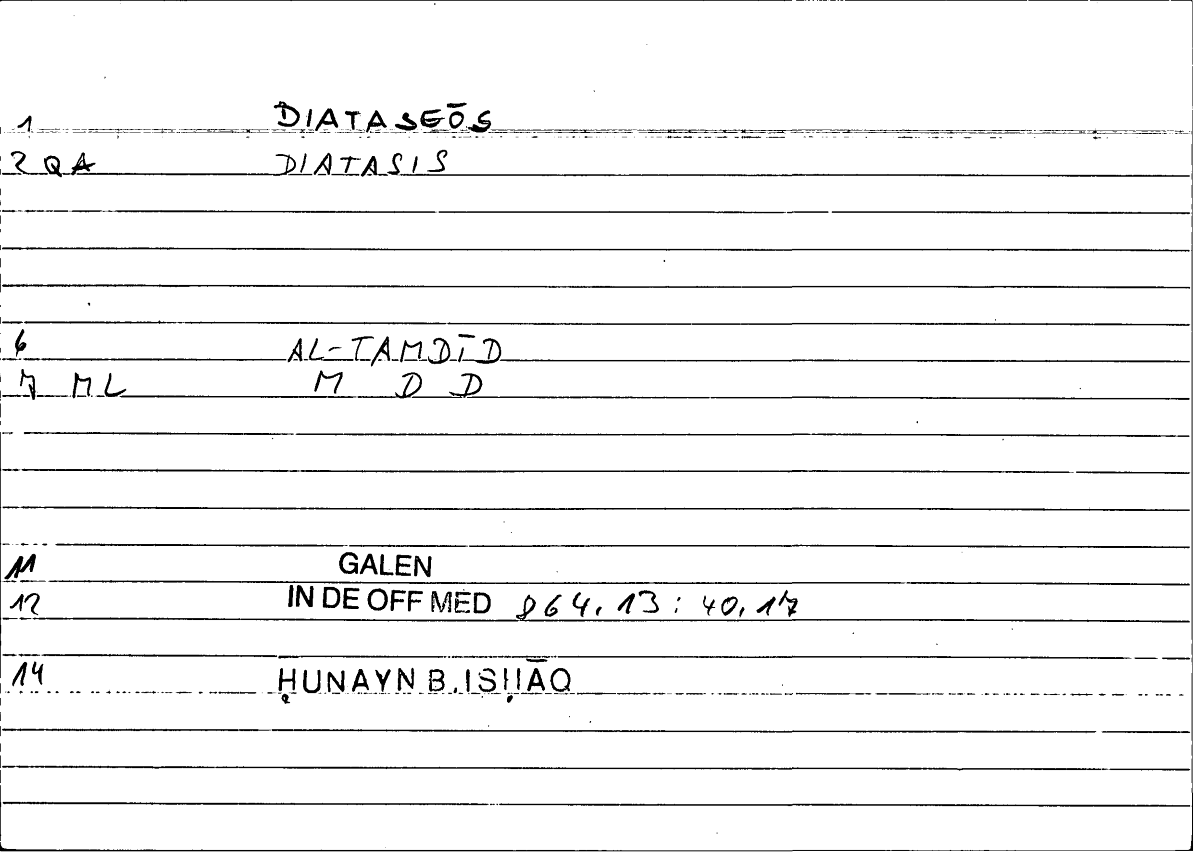 1 DIATASEŌS
2 QA DIATASIS
6 AL-TAMDĪD
7 ML M D D
11 GALEN
12 IN DE OFF MED 864,13 : 40,17
14 ḤUNAYN B. ISḤĀQ